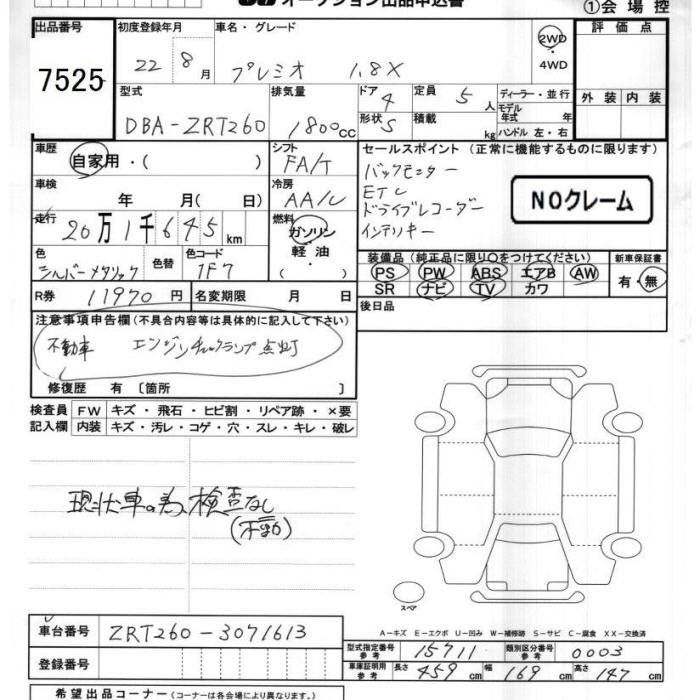 オークション出品申込書
①会場控
出品番号 初度登録年月 車名・グレード 評価点
7525 22年 8月 プレミオ 1.8X 2WD・4WD
型式 排気量 ドア 定員 ディーラー・並行 外装 内装
DBA-ZRT260 1800cc 4 5人 モデル年式 年
形状 S 積載 kg ハンドル 左・右
車歴 シフト セールスポイント (正常に機能するものに限ります)
自家用・( ) FA/T バックモニター
車検 冷房 ETC
年 月( 日) AA/C ドライブレコーダー NOクレーム
走行 燃料 インテリキー
20万1千645km ガソリン・軽油・( )
色 色替 色コード 装備品 (純正品に限り○をつけてください) 新車保証書
シルバーメタリック 1F7 PS PW ABS エアB AW 有・無
SR ナビ TV カワ
R券 11970円 名変期限 月 日 後日品
注意事項申告欄 (不具合内容等は具体的に記入して下さい)
不動車 エンジンチェックランプ点灯
修復歴 有 〔箇所 〕
検査員記入欄 FW キズ・飛石・ヒビ割・リペア跡・×要
内装 キズ・汚レ・コゲ・穴・スレ・キレ・破レ
現状車の為、検査なし
(不動)
スペア
A-キズ E-エクボ U-凹み W-補修跡 S-サビ C-腐食 XX-交換済
車台番号 ZRT260-3071613
型式指定番号 参考 15711 類別区分番号 参考 0003
登録番号
車庫証明用 参考 長さ 459cm 幅 169cm 高さ 147cm
希望出品コーナー (コーナーは各会場により異なります。)